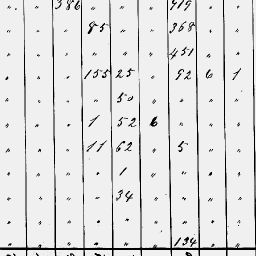 " " 386 " " " 919 " "
" " " 85 " " 368 " "
" " " " " " 451 " "
" " " 155 25 " 92 6 1
" " " " 50 " " " "
" " " 1 52 6 " " "
" " " 11 62 " 5 " "
" " " " 1 " " " "
" " " " 34 " " " "
" " " " " " " " "
" " " " " " 134 " "